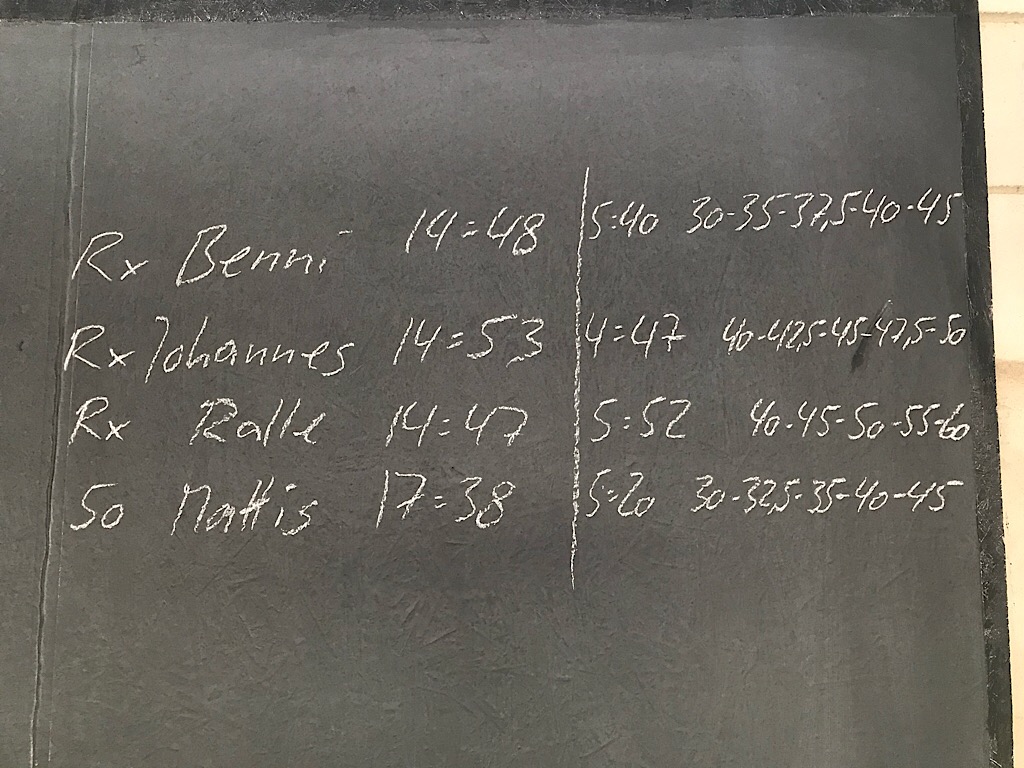 Rx Benni 14:48 5:40 30-35-37,5-40-45
Rx Johannes 14:53 4:47 40-42,5-45-47,5-50
Rx Ralle 14:47 5:52 40-45-50-55-60
50 Mattis 17:38 5:20 30-32,5-35-40-45